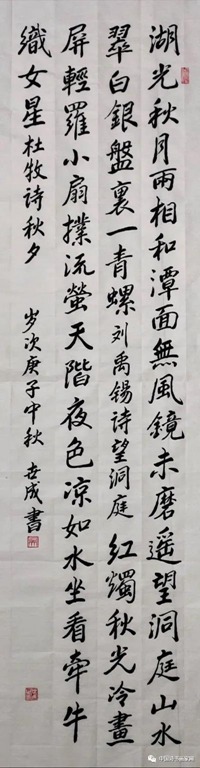 湖光秋月兩相和潭面無風鏡未磨遥望洞庭山水
翠白銀盤裏一青螺刘禹锡诗望洞庭 红燭秋光冷畫
屏輕羅小扇撲流螢天階夜色凉如水坐看牽牛
織女星杜牧诗秋夕
岁次庚子中秋 世成書